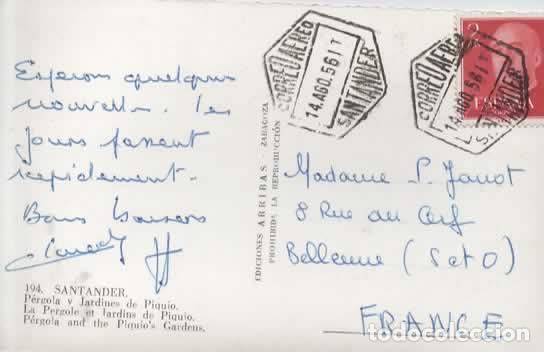 Esperons quelques
nouvelles. Les
jours passent
rapidement.
Bons baisers
194. SANTANDER.
Pérgola y Jardines de Piquío.
La Pergole et Jardins de Piquio.
Pérgola and the Piquio's Gardens.
EDICIONES ARRIBAS - ZARAGOZA
PROHIBIDA LA REPRODUCCIÓN
CORREO AEREO
14.AGO.56 1T
SANTANDER
CORREO AEREO
14.AGO.56 1T
SANTANDER
ESPAÑA
Madame P. Janot
8 Rue du Cerf
Bellevue (S et O)
FRANCE
todocoleccion